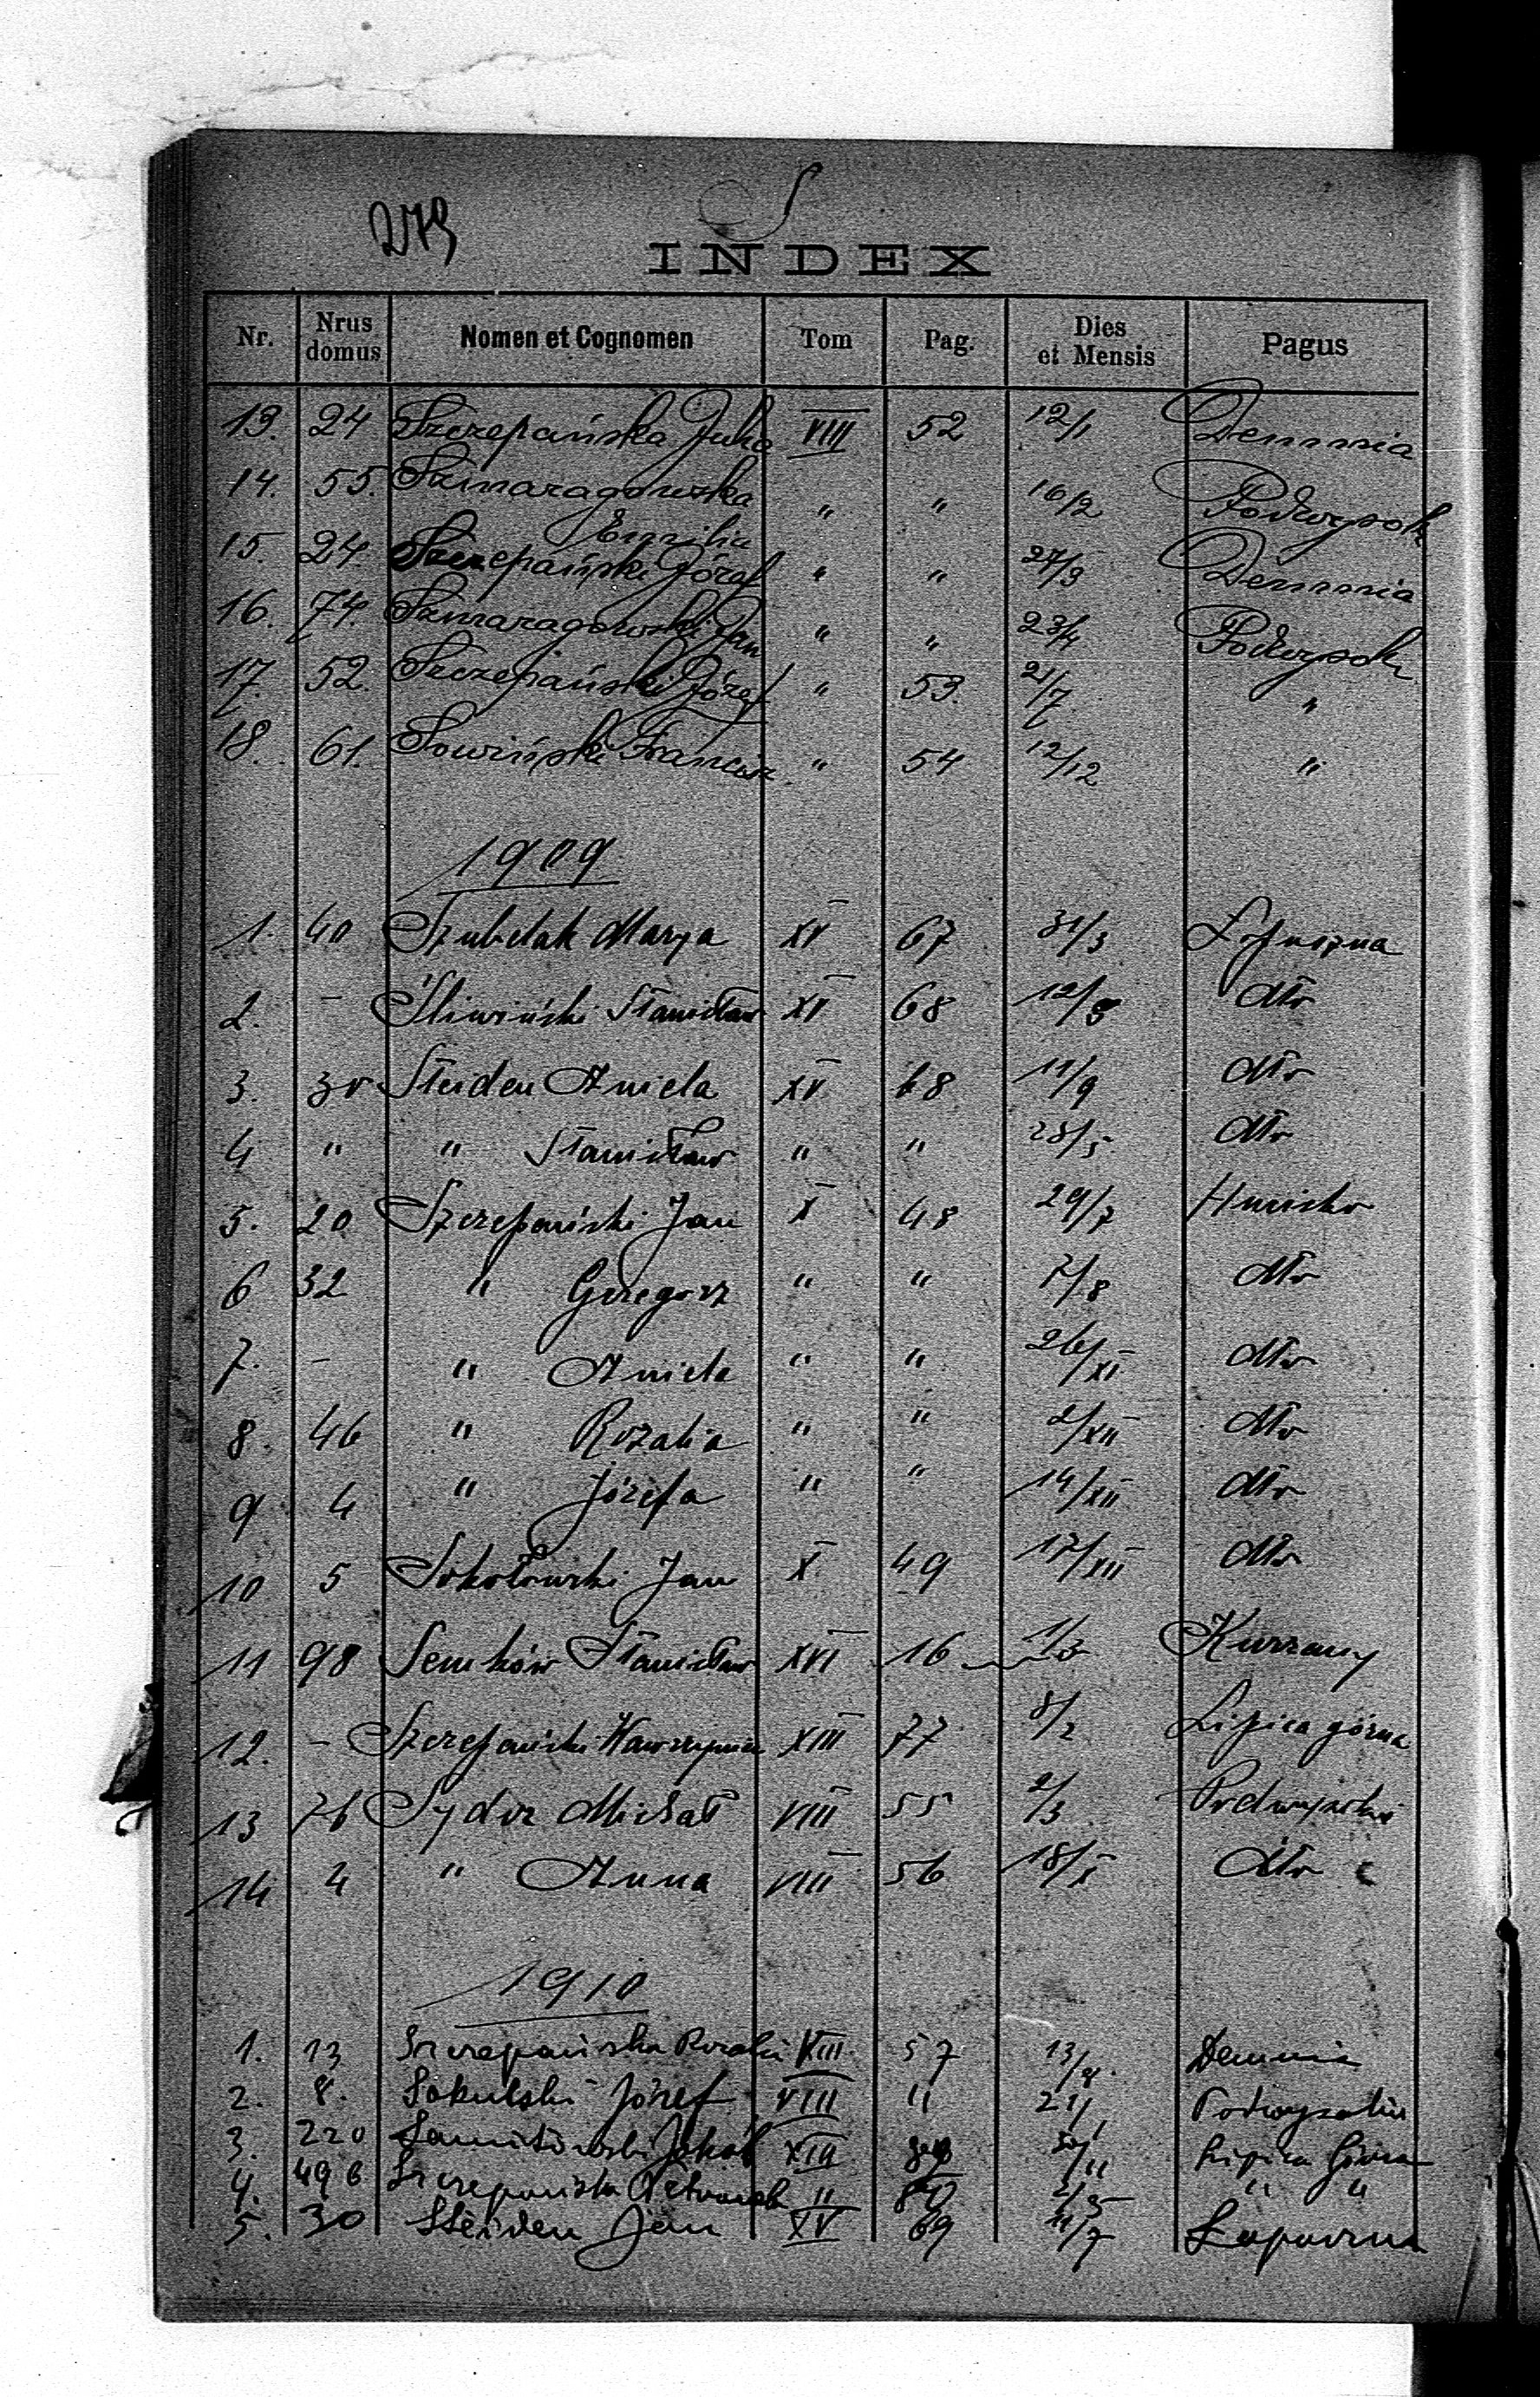 S
INDEX
Nr. Nrus domus Nomen et Cognomen Tom Pag. Dies et Mensis Pagus
13. 24 Szczepańska Julia VIII 52 12/1 Demnia
14. 55. Szmaragowska " " 16/2 Podwysok
Emilia
15. 24. Szczepański Józef " " 27/3 Demnia
16. 74. Szmaragowski Jan " " 23/4 Podwysok
17. 52. Szczepański Józef " 53. 21/7 "
18. 61. Sowiński Francisz. " 54 12/12 "
1909
1. 40 Szubelak Marya XV 67 31/3 Łopuszna
2. – Śliwiński Stanisław XV 68 12/8 dto
3. 30 Steiden Aniela XV 68 11/9 dto
4 " " Stanisław " " 28/5 dto
5. 20 Szczepański Jan X 48 29/7 Hucisko
6 32 " Grzegorz " " 7/8 dto
7. – " Aniela " " 26/XI dto
8. 46 " Rozalia " " 2/XII dto
9 4 " Józefa " " 14/XII dto
10 5 Sokołowski Jan X 49 17/XII dto
11 98 Semków Stanisław XVI 16 Kurzany
12. – Szczepański Wawrzyniec XIII 77 8/2 Lipica górna
13 76 Sydor Michał VIII 55 2/3 Podwysokie
14 4 " Anna VIII 56 18/X dto
1910
1. 13 Szczepańska Rozalia VIII 57 Demnia
2. 8. Sokulski Józef VIII " 21/1 Podwysokie
3. 220 Jakób XIII Lipica Górna
4. 496 Szczepańska " 80 " "
5. 30 Steiden Jan XV 69 11/7 Łopuszna